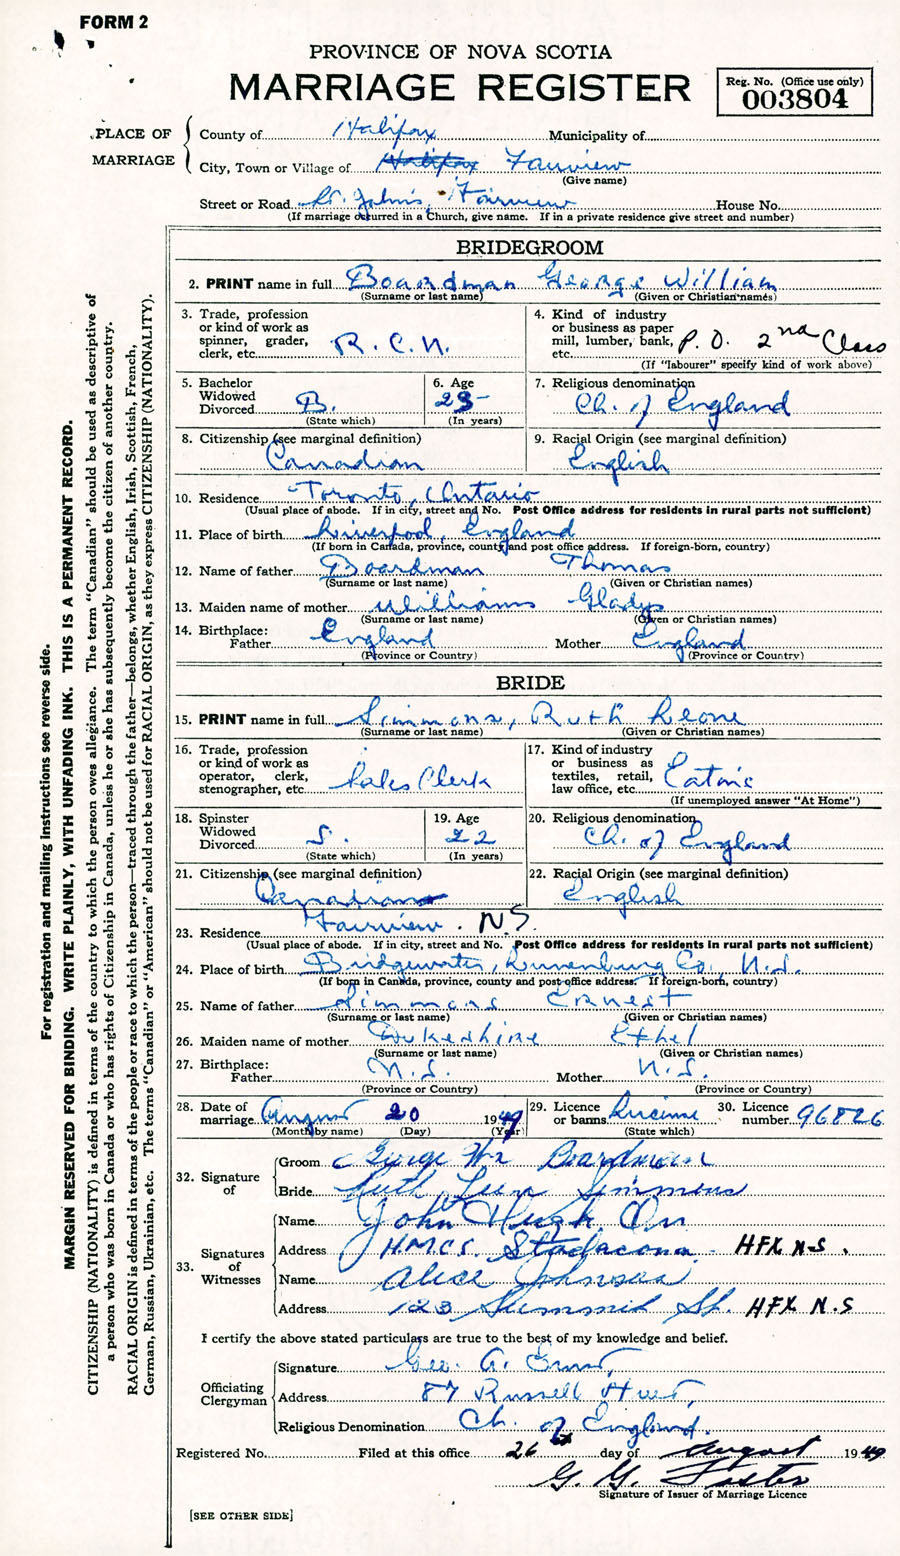 FORM 2
PROVINCE OF NOVA SCOTIA
MARRIAGE REGISTER
Reg. No. (Office use only)
003804
PLACE OF MARRIAGE
County of Halifax Municipality of
City, Town or Village of Halifax Fairview
(Give name)
Street or Road St. John's, Fairview House No.
(If marriage occurred in a Church, give name. If in a private residence give street and number)
BRIDEGROOM
2. PRINT name in full Boardman George William
(Surname or last name) (Given or Christian names)
3. Trade, profession or kind of work as spinner, grader, clerk, etc. R.C.N.
4. Kind of industry or business as paper mill, lumber, bank, etc. P.O. 2nd Class
(If "labourer" specify kind of work above)
5. Bachelor Widowed Divorced B.
(State which)
6. Age 23
(In years)
7. Religious denomination Ch. of England
8. Citizenship (see marginal definition) Canadian
9. Racial Origin (see marginal definition) English
10. Residence Toronto, Ontario
(Usual place of abode. If in city, street and No. Post Office address for residents in rural parts not sufficient)
11. Place of birth Liverpool, England
(If born in Canada, province, county and post office address. If foreign-born, country)
12. Name of father Boardman Thomas
(Surname or last name) (Given or Christian names)
13. Maiden name of mother Williams Gladys
(Surname or last name) (Given or Christian names)
14. Birthplace: Father England Mother England
(Province or Country) (Province or Country)
BRIDE
15. PRINT name in full Simmons, Ruth Leone
(Surname or last name) (Given or Christian names)
16. Trade, profession or kind of work as operator, clerk, stenographer, etc. Sales Clerk
17. Kind of industry or business as textiles, retail, law office, etc. Eatons
(If unemployed answer "At Home")
18. Spinster Widowed Divorced S.
(State which)
19. Age 22
(In years)
20. Religious denomination Ch. of England
21. Citizenship (see marginal definition) Canadian
22. Racial Origin (see marginal definition) English
23. Residence Fairview. N.S.
(Usual place of abode. If in city, street and No. Post Office address for residents in rural parts not sufficient)
24. Place of birth Bridgewater, Lunenburg Co., N.S.
(If born in Canada, province, county and post office address. If foreign-born, country)
25. Name of father Simmons Ernest
(Surname or last name) (Given or Christian names)
26. Maiden name of mother Dukeshire Ethel
(Surname or last name) (Given or Christian names)
27. Birthplace: Father N.S. Mother N.S.
(Province or Country) (Province or Country)
28. Date of marriage August 20 1949
(Month by name) (Day) (Year)
29. Licence or banns License
(State which)
30. Licence number 96826
32. Signature of
Groom George Wm Boardman
Bride Ruth Simmons
33. Signatures of Witnesses
Name John Hugh Orr
Address HMCS. Stadacona. HFX N.S.
Name Alice Johnson
Address 123 Summit St. HFX N.S
I certify the above stated particulars are true to the best of my knowledge and belief.
Officiating Clergyman
Signature Geo. A. Ernst,
Address 87 Russell Street,
Religious Denomination Ch. of England.
Registered No. Filed at this office 26 day of August 1949
G. G. Foster
Signature of Issuer of Marriage Licence
[SEE OTHER SIDE]
For registration and mailing instructions see reverse side.
MARGIN RESERVED FOR BINDING. WRITE PLAINLY, WITH UNFADING INK. THIS IS A PERMANENT RECORD.
CITIZENSHIP (NATIONALITY) is defined in terms of the country to which the person owes allegiance. The term "Canadian" should be used as descriptive of
a person who was born in Canada or who has rights of Citizenship in Canada, unless he or she has subsequently become the citizen of another country.
RACIAL ORIGIN is defined in terms of the people or race to which the person—traced through the father—belongs, whether English, Irish, Scottish, French,
German, Russian, Ukrainian, etc. The terms "Canadian" or "American" should not be used for RACIAL ORIGIN, as they express CITIZENSHIP (NATIONALITY).